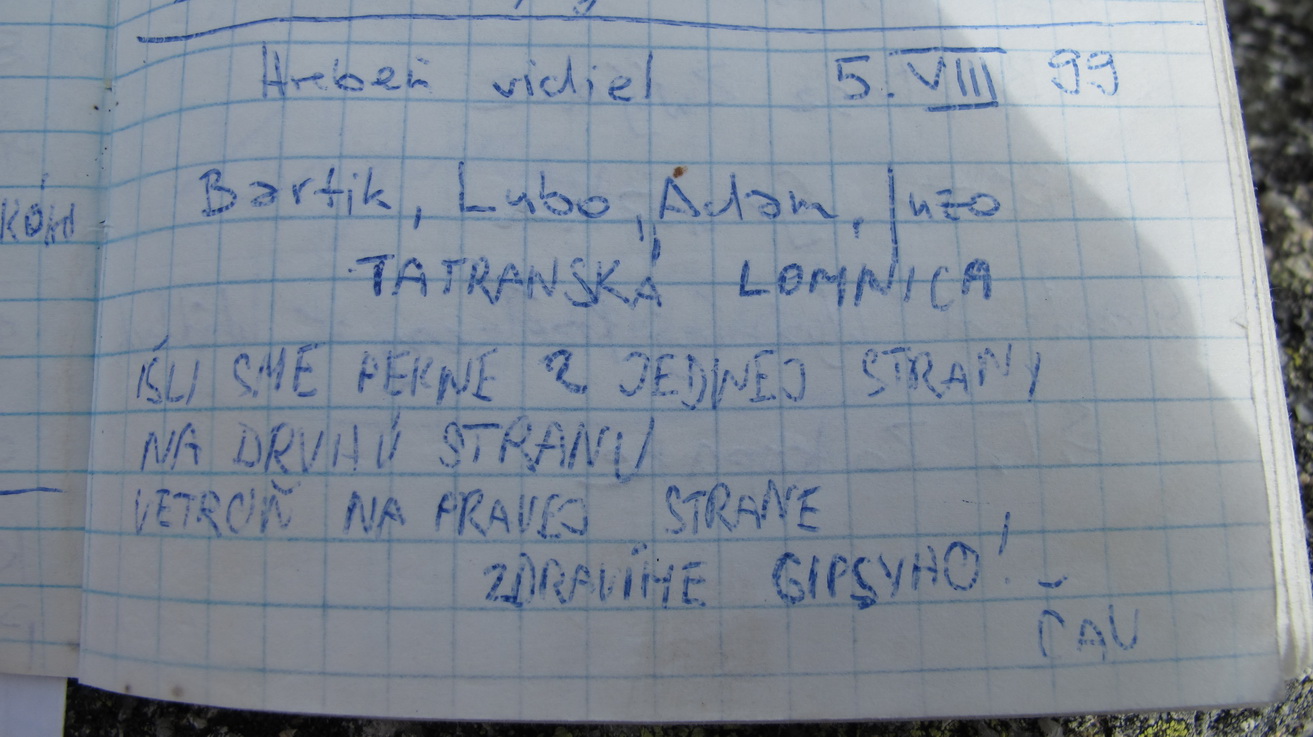 Hrebeň vidiel 5. VIII 99
Bartik, Lubo, Adam, Juzo
TATRANSKÁ LOMNICA
IŠLI SME PEKNE Z JEDNEJ STRANY
NA DRUHÚ STRANU
VETROŇ NA PRAVEJ STRANE
ZDRAVÍME GIPSYHO!
ČAU